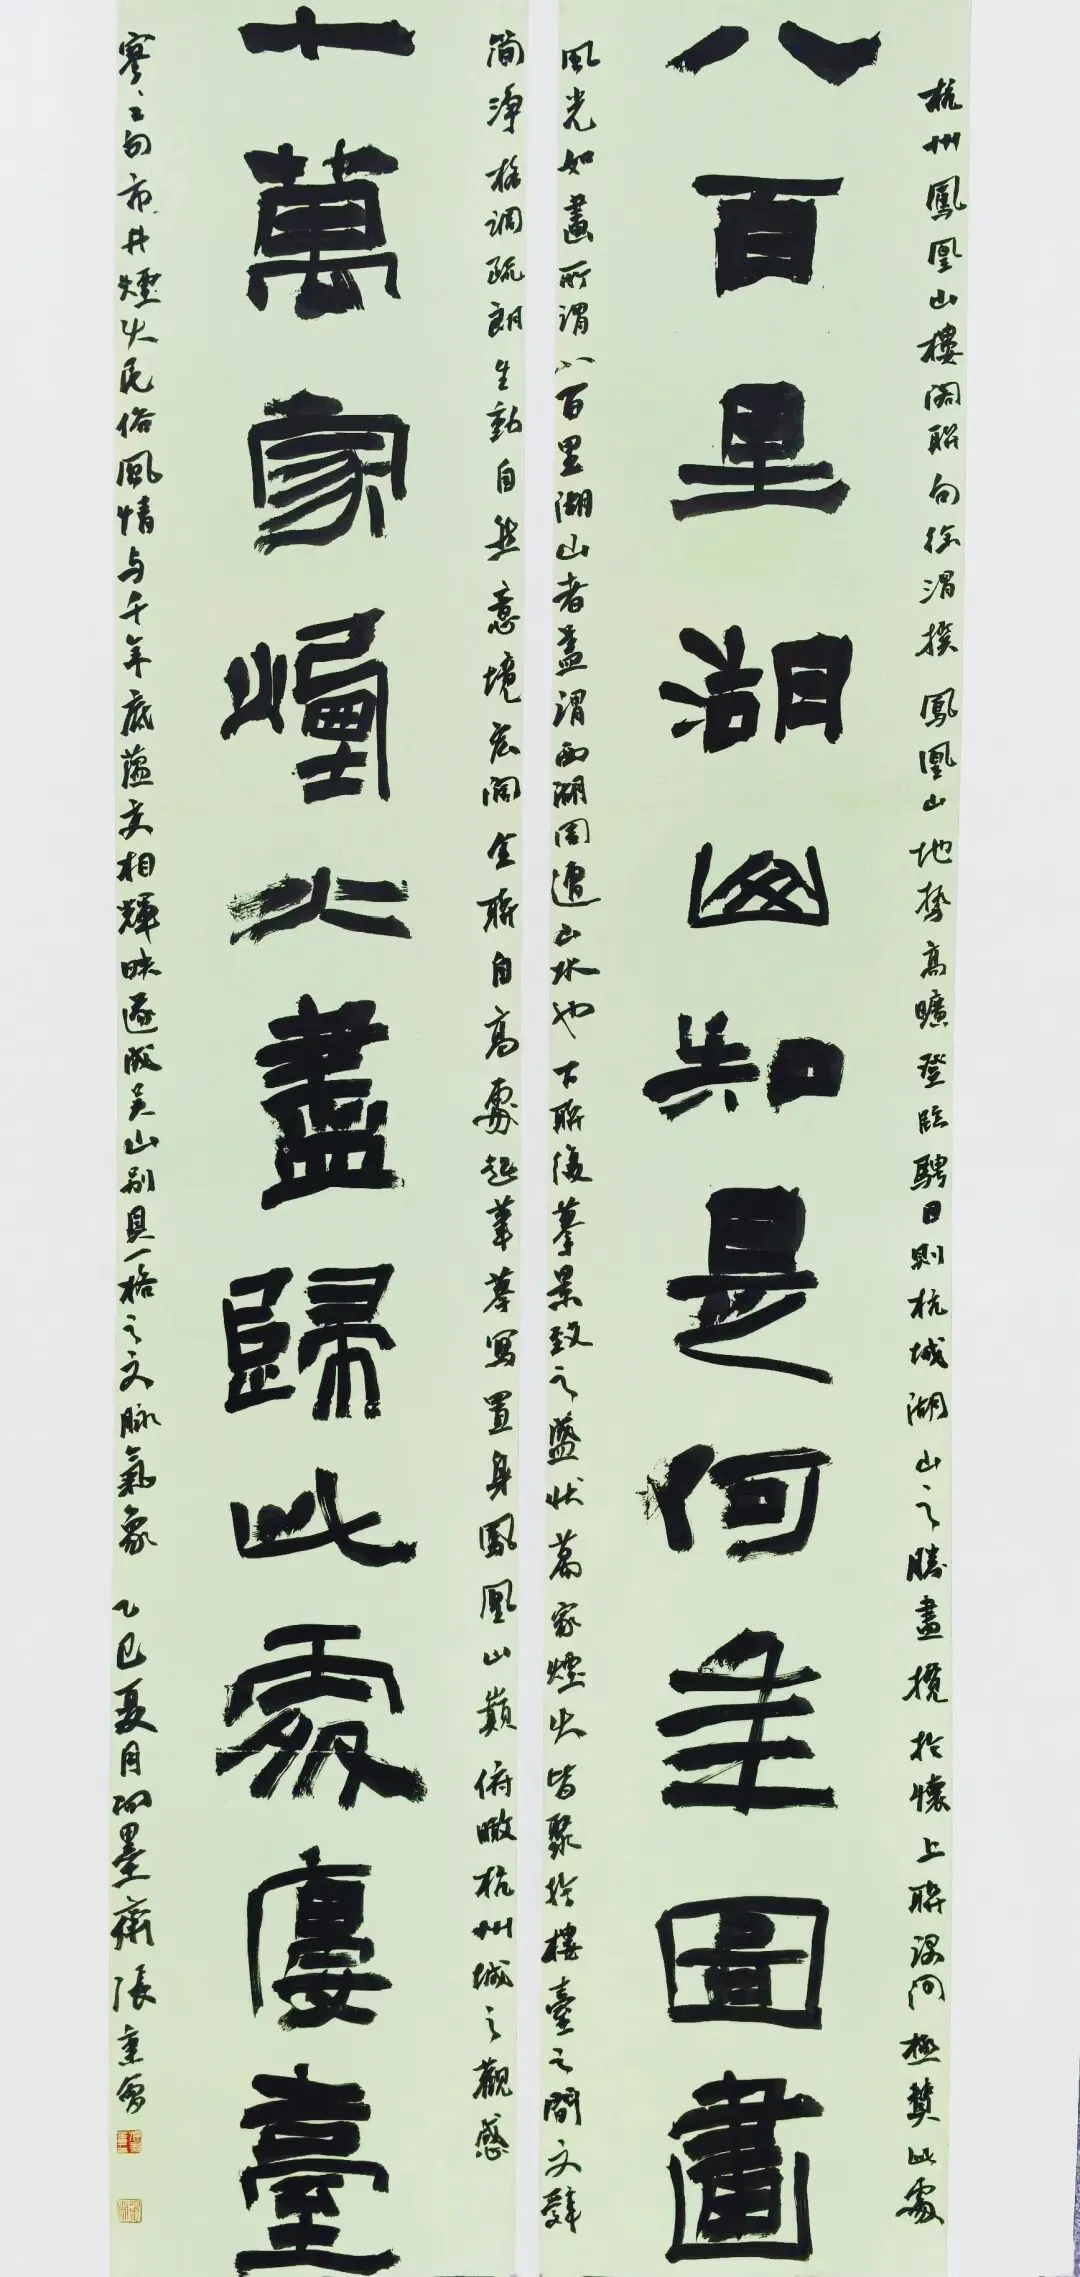 八百里湖山知是何年圖畫
杭州鳳凰山樓閣聯句徐渭撰 鳳凰山地勢高曠登臨騁目則杭城湖山之勝盡攬於懷上聯設問極贊此處
風光如畫所謂八百里湖山者蓋謂西湖周邊山水也下聯復摹景致之盛狀萬家煙火皆聚於樓臺之間文辭
十萬家煙火盡歸此處樓臺
簡淨格調疏朗生動自然意境宏闊全聯自高處起筆摹寫置身鳳凰山巔俯瞰杭州城之觀感
寥寥之句市井煙火民俗風情與千年底蘊交相輝映遂成吳山別具一格之文脉氣象 乙巳夏月 墨齋張